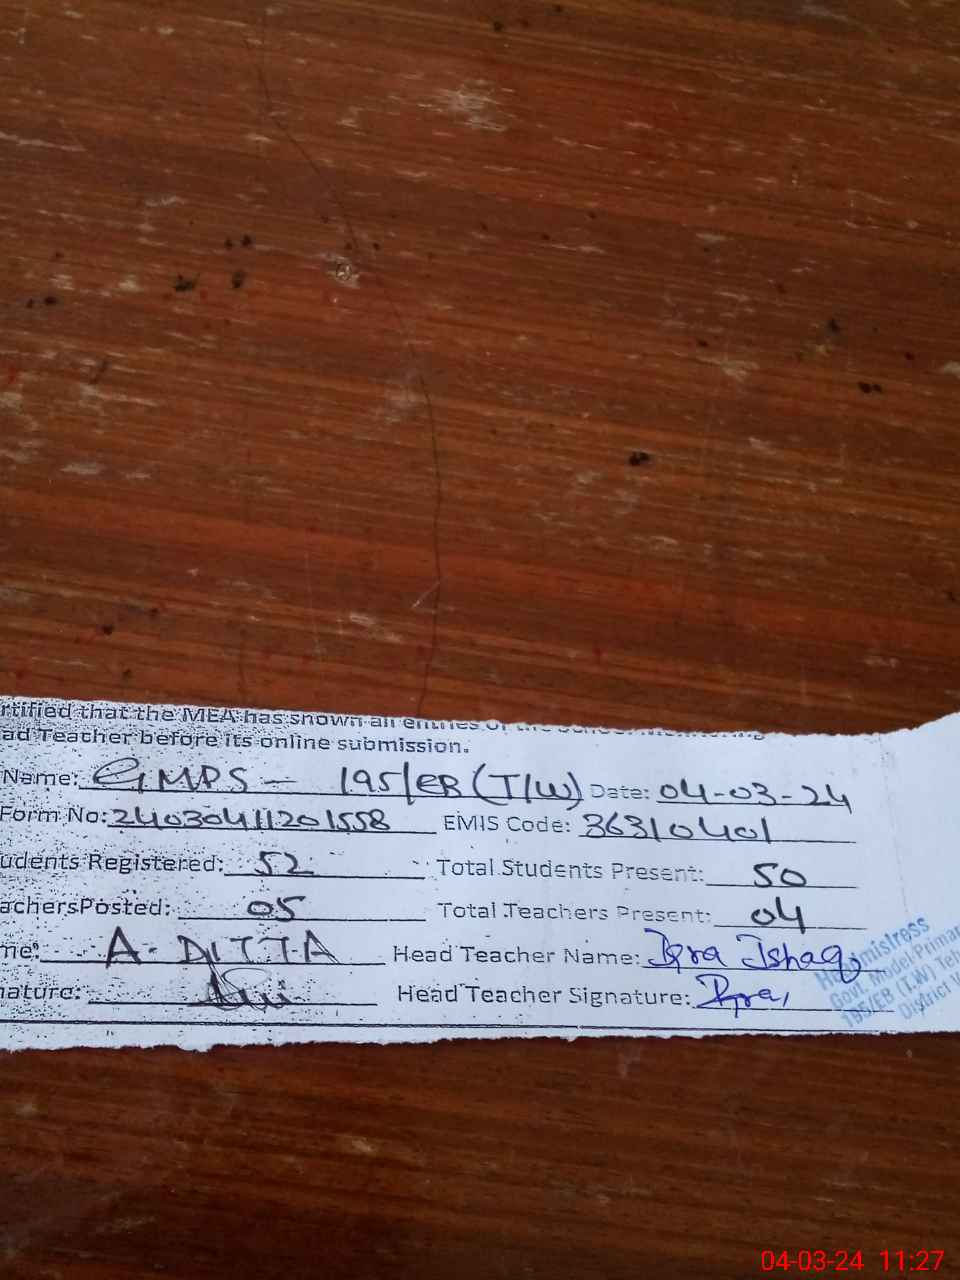 rtified that the MEA has shown all entries of the School Monitoring
ad Teacher before its online submission.
Name: GMPS - 195/EB (T/W) Date: 04-03-24
Form No: 24030411201558 EMIS Code: 36310401
udents Registered: 52 Total Students Present: 50
achersPosted: 05 Total Teachers Present: 04
me: A. DITTA Head Teacher Name: Iqra Ishaq
nature: Head Teacher Signature: Iqra,
Headmistress
Govt. Model Primar
195/EB (T.W) Teh
District V
04-03-24 11:27